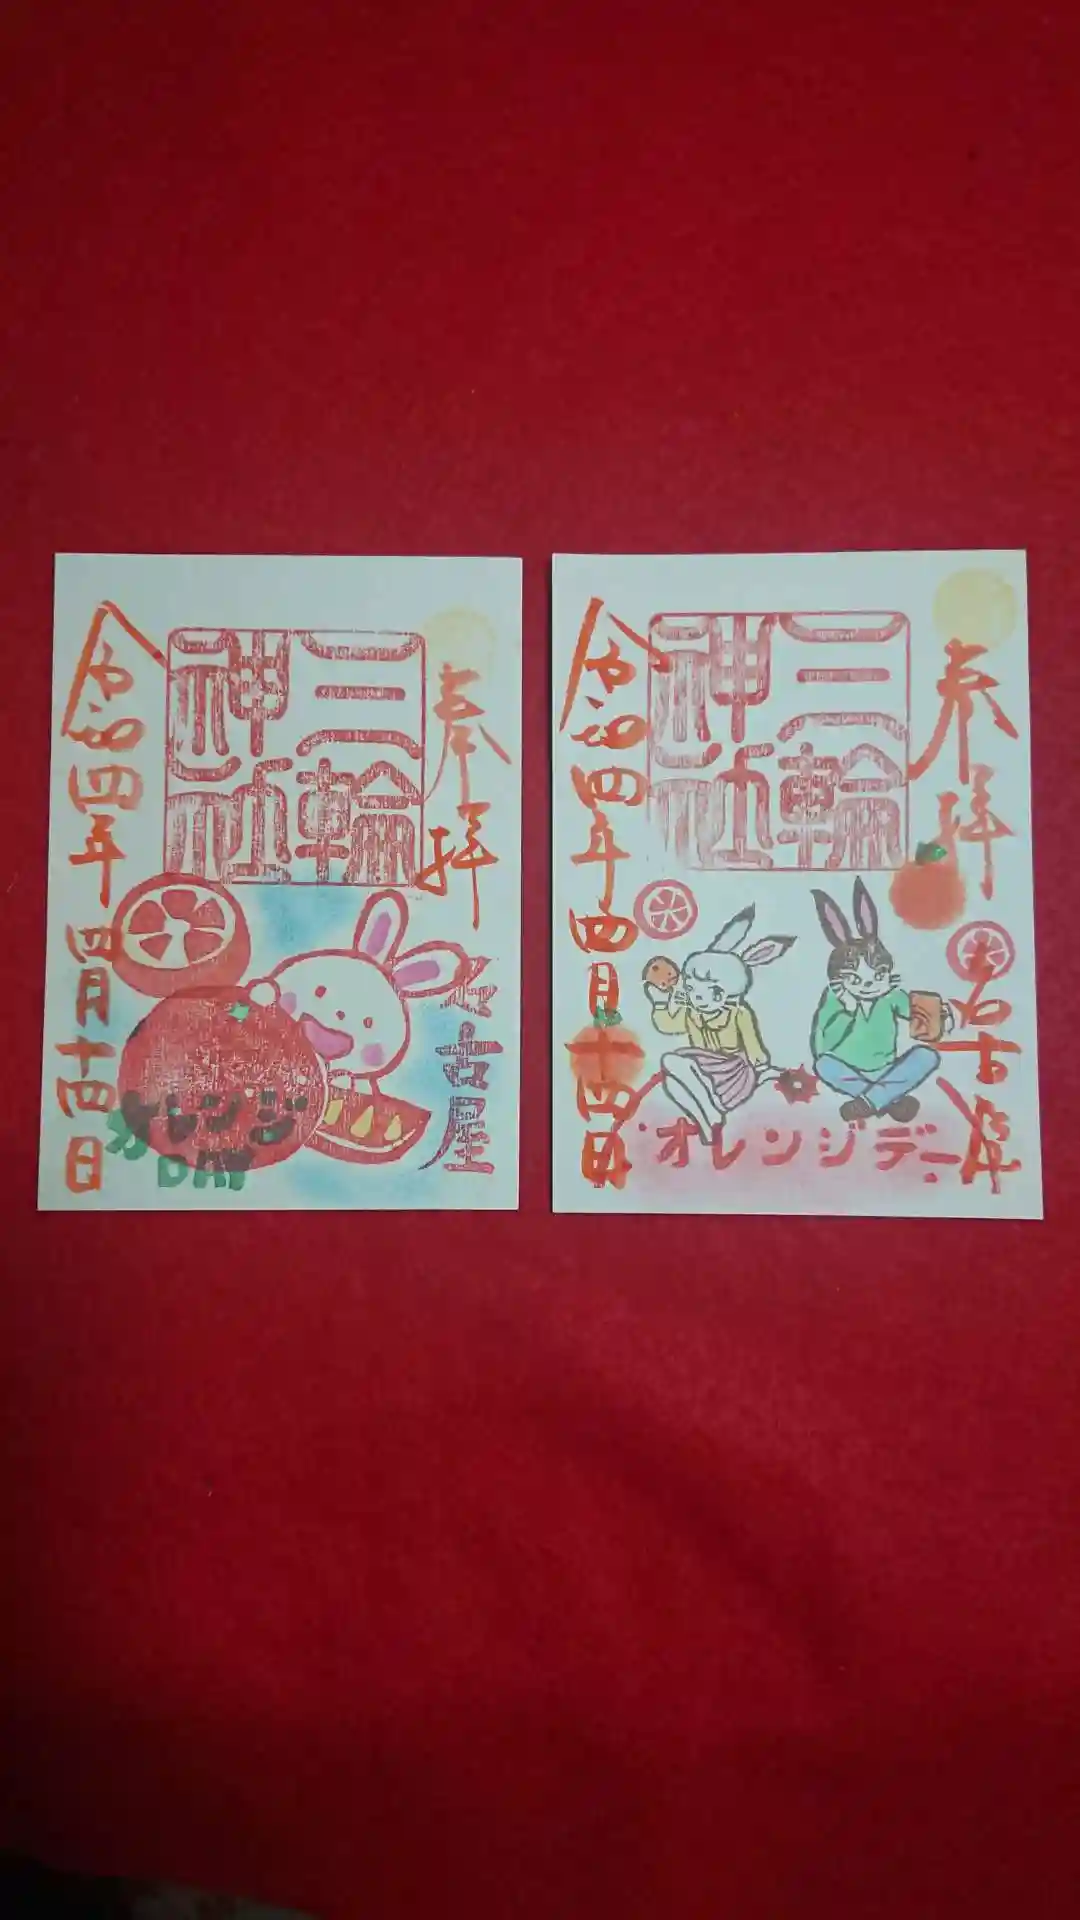 奉拝
三輪
神社
名古屋
令和四年四月十四日
オレンジ
DAY
奉拝
三輪
神社
名古屋
令和四年四月十四日
オレンジデー